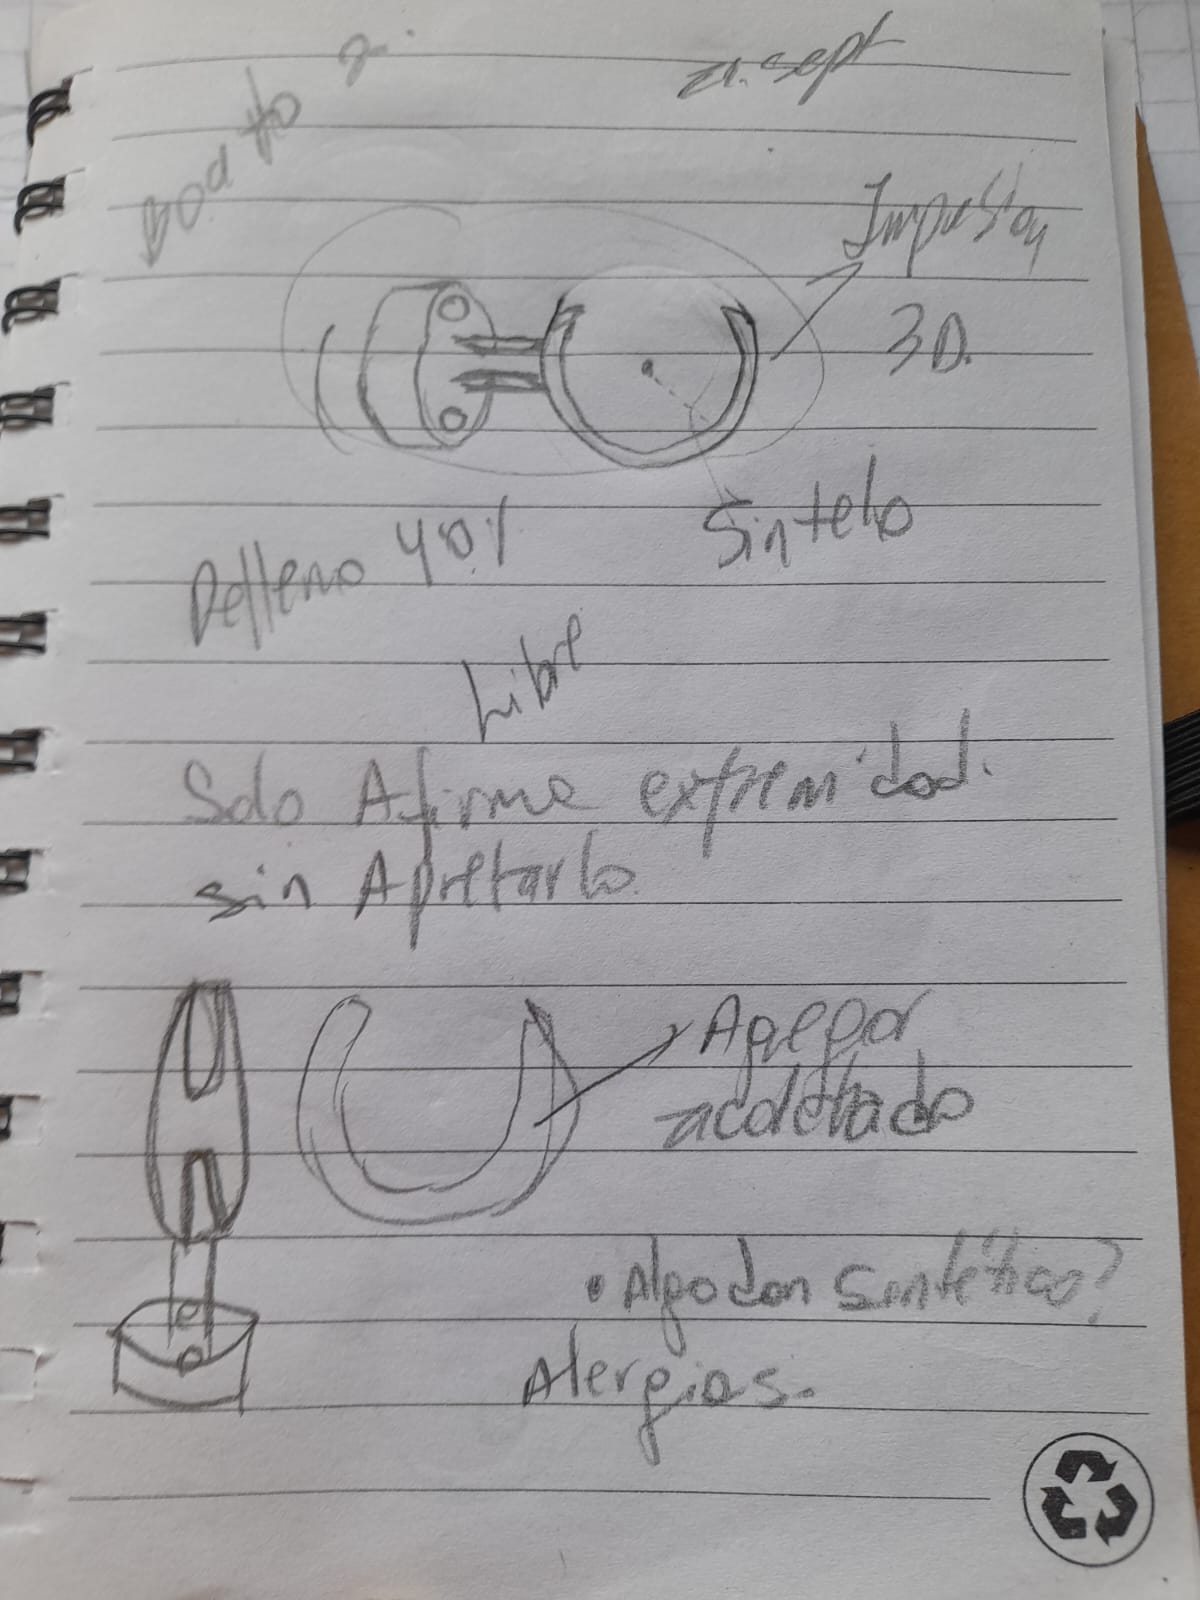 Boceto 2.
21. sept
Impresion
3D.
Sintelo
Relleno 40%
Libre
Solo Afirma extremidad.
sin Apretarlo
Agregar
acolchado
• Algodon sintético?
Alergias.